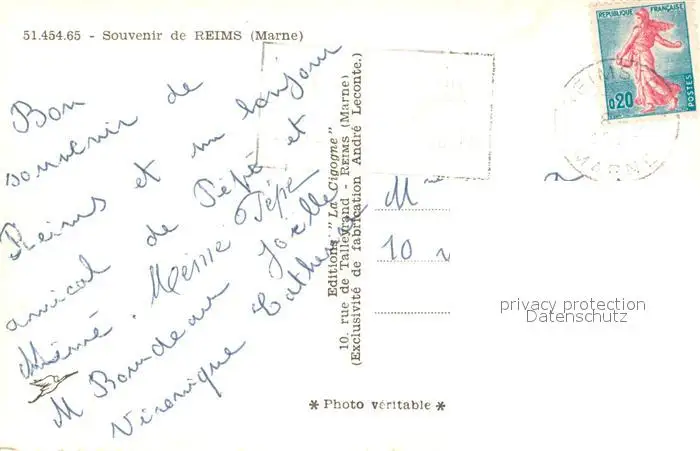 51.454.65 - Souvenir de REIMS (Marne)
Bon
souvenir de
Reims et un bonjour
amical de Pépé et
Mémé. Mémé Pépé
M Boudeau Joëlle
Véronique Catherine
Editions "La Cigogne"
10, rue de Talleyrand - REIMS (Marne)
(Exclusivité de fabrication André Leconte.)
* Photo véritable *
REPUBLIQUE FRANÇAISE
0,20
POSTES
REIMS
MARNE
M
10
privacy protection
Datenschutz